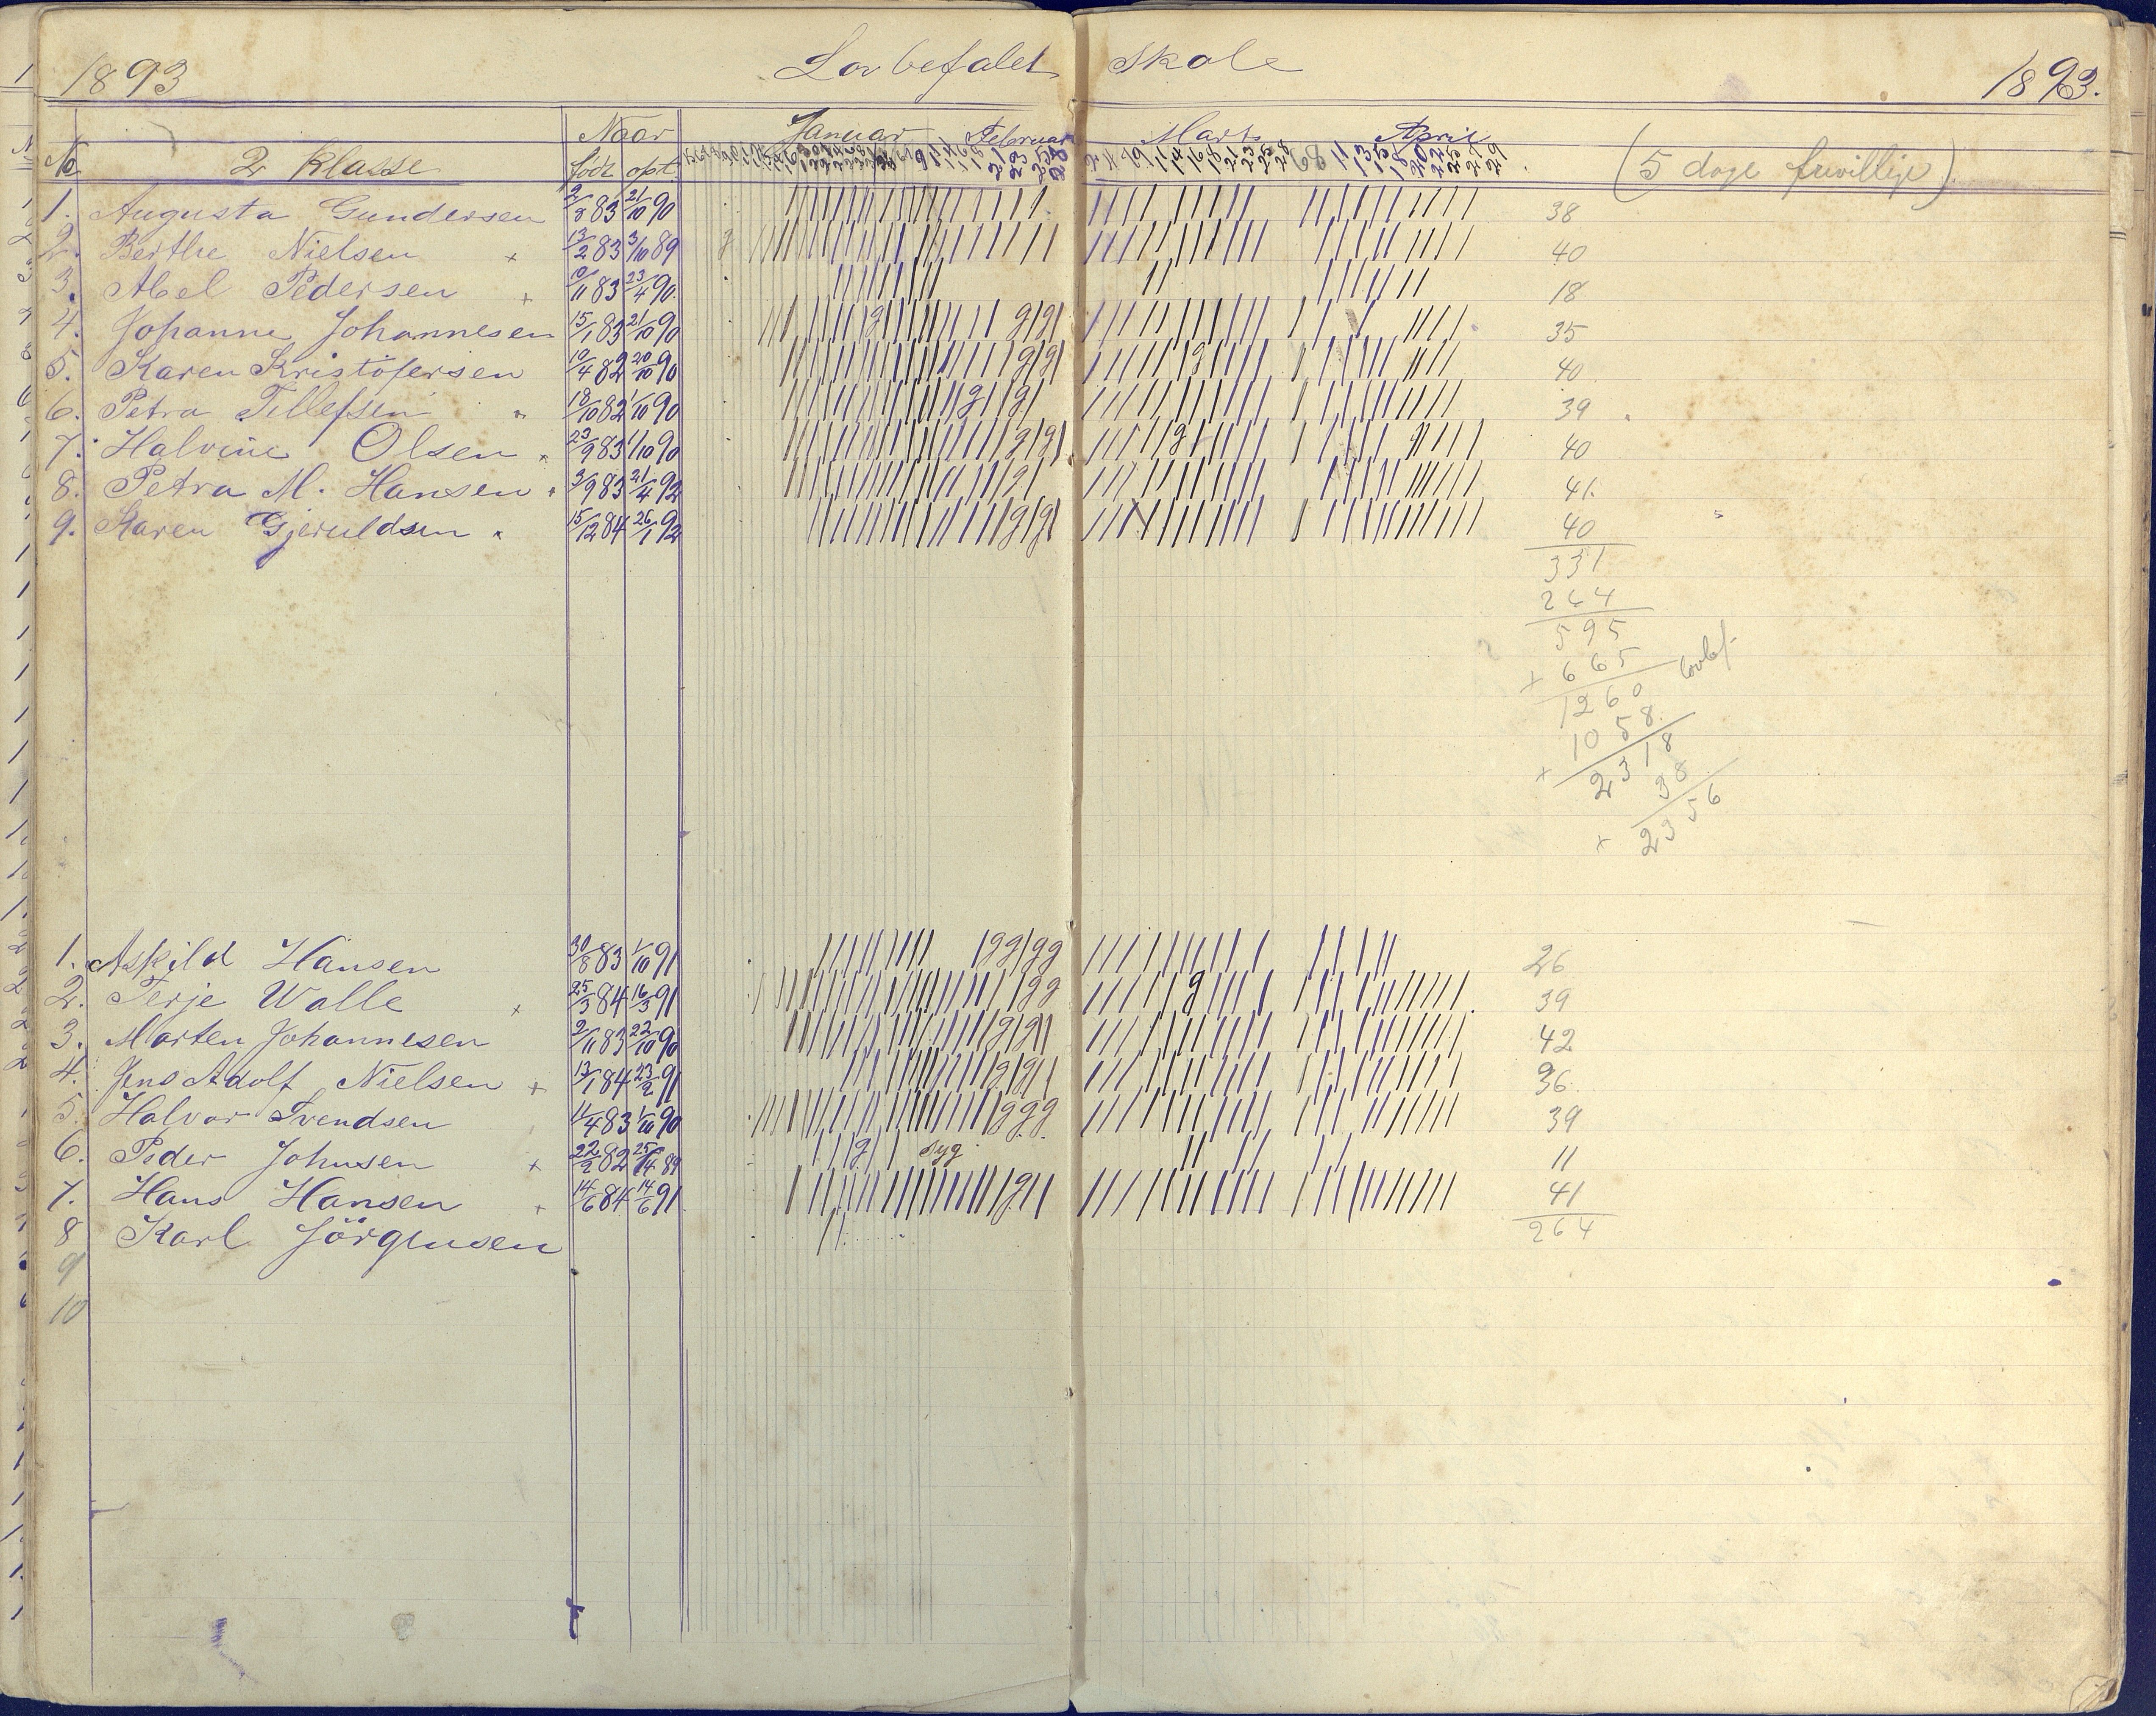 1893 Lovbefalet Skole 1893.
Naar Januar Februar Marts April
No 2 Klasse född opt. (5 dage frivillige).
1. Augusta Gundersen 2/8 83 21/10 90 38
2. Berthe Nielsen 13/2 83 3/10 89 40
3. Abel Pedersen 10/11 83 23/4 90. 18
4. Johanne Johannesen 15/1 83 21/10 90 35
5. Karen Kristöfersen 10/4 82 20/10 90 40
6. Petra Tellefsen 18/10 82 1/10 90 39
7. Halvine Olsen 23/9 83 1/10 90 40
8. Petra M. Hansen 3/9 83 21/4 92 41.
9. Karen Gjeruldsen 15/12 84 26/1 92 40
331
264
595
+ 665 lovbef.
1260
1058.
+ 2318
38
+ 2356
1. Askild Hansen 30/8 83 1/10 91 26
2. Terje Walle 25/3 84 16/3 91 39
3. Marten Johannesen 2/11 83 22/10 90 42
4. Jens Adolf Nielsen 13/1 84 23/2 91 36.
5. Halvor Svendsen 11/4 83 1/10 90 39
6. Peder Johnsen 22/2 82 25/4 89 syg 11
7. Hans Hansen 14/6 84 14/6 91 41
8 Karl Jörgensen 264
9
10